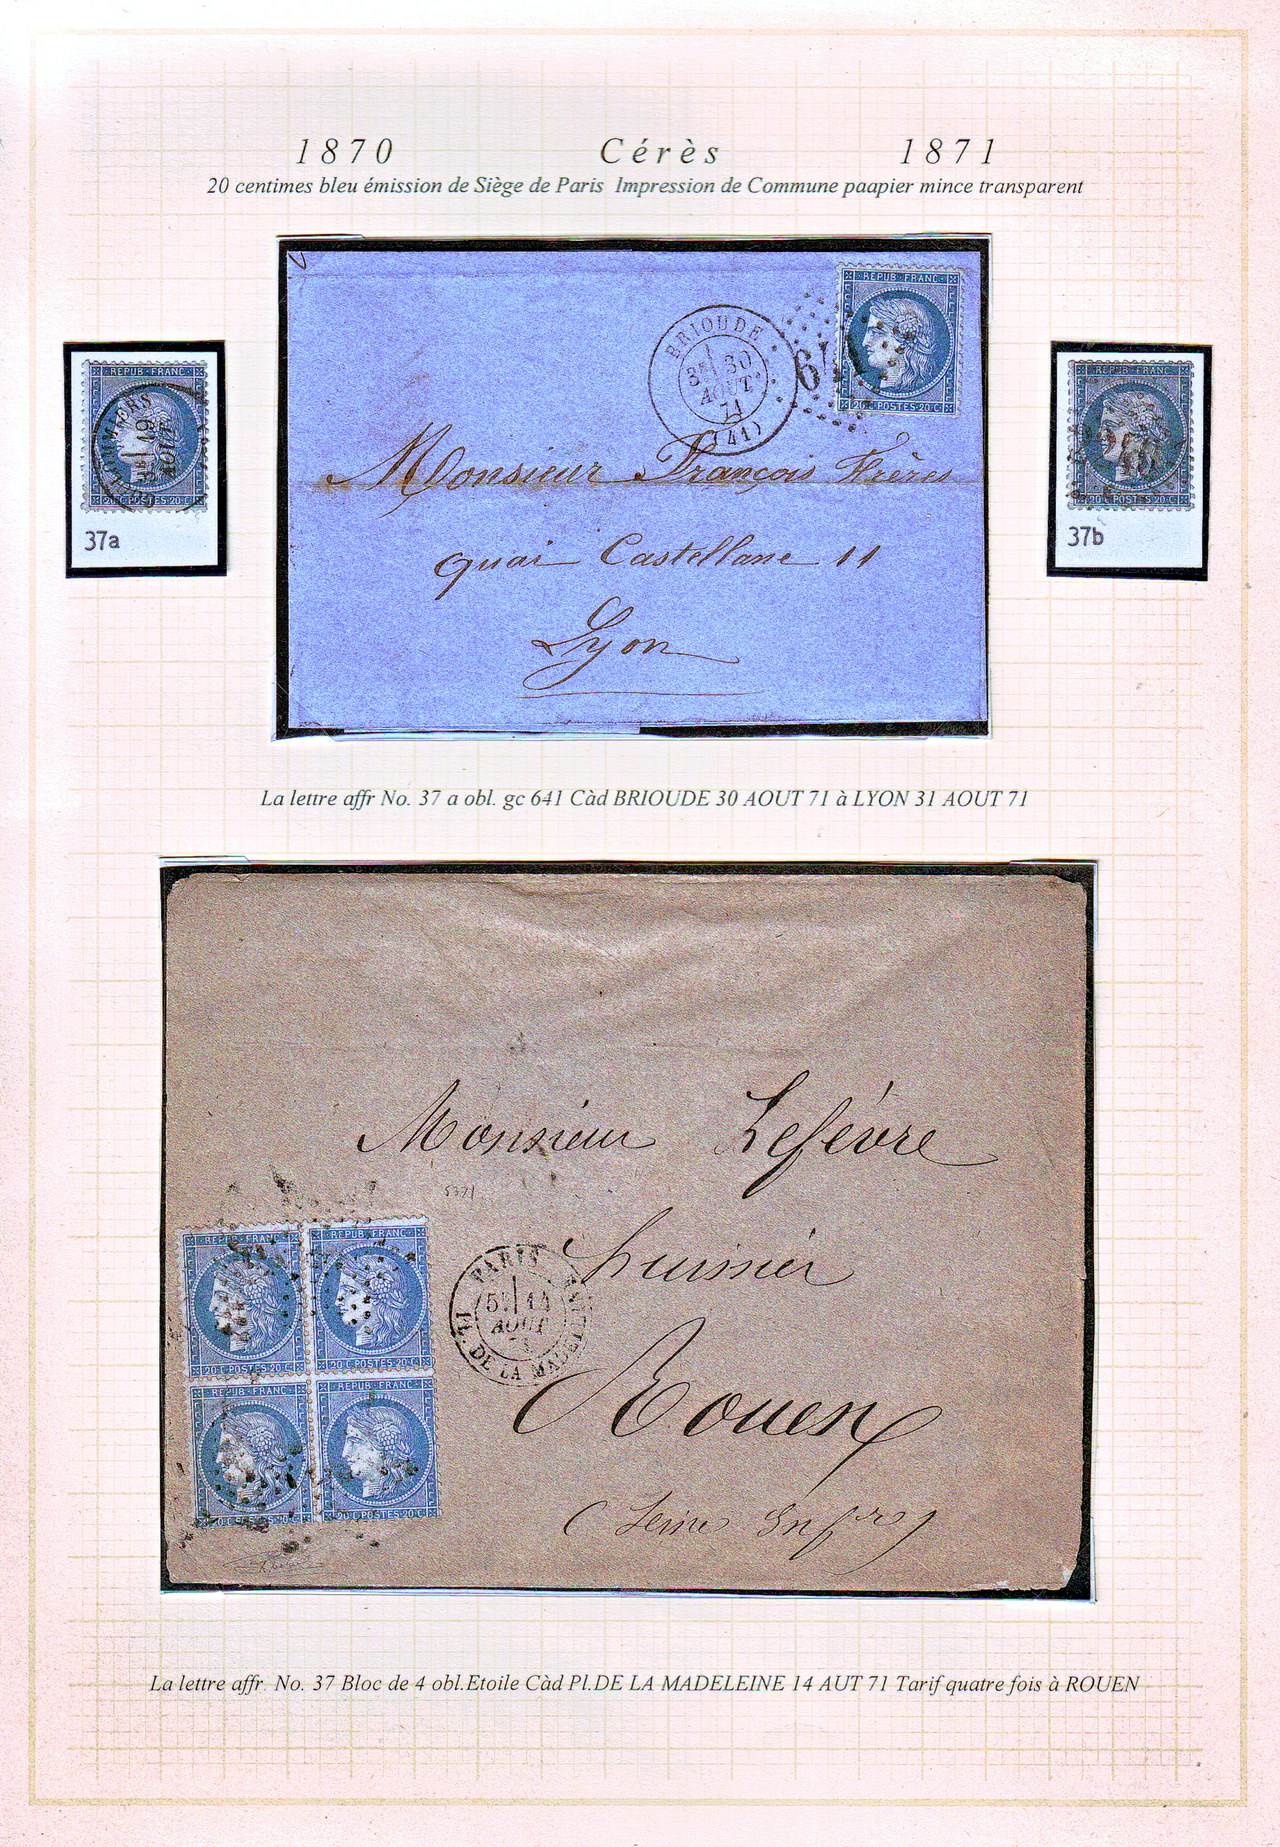 1870 Cérès 1871
20 centimes bleu émission de Siège de Paris Impression de Commune paapier mince transparent
REPUB·FRANC·
BRIOUDE
3E 30
AOUT
71
(41)
641
20 C·POSTES·20 C·
REPUB·FRANC·
19
AOUT
20 C·POSTES·20 C·
37a
REPUB·FRANC·
20 C·POSTES·20 C·
37b
Monsieur François Frères
quai Castellane 11
Lyon
La lettre affr No. 37 a obl. gc 641 Càd BRIOUDE 30 AOUT 71 à LYON 31 AOUT 71
Monsieur Lefévre
huissier
Rouen
(Seine Infre)
REPUB·FRANC· REPUB·FRANC·
20 C·POSTES·20 C· 20 C·POSTES·20 C·
REPUB·FRANC· REPUB·FRANC·
20 C·POSTES·20 C· 20 C·POSTES·20 C·
PARIS
5E 14
AOUT
PL. DE LA MADELEINE
La lettre affr. No. 37 Bloc de 4 obl.Etoile Càd Pl.DE LA MADELEINE 14 AUT 71 Tarif quatre fois à ROUEN